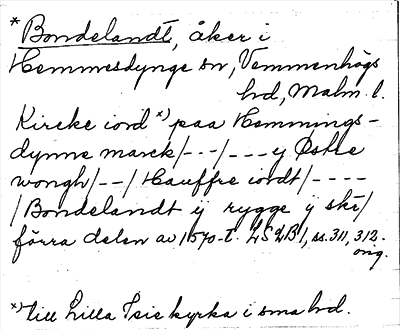 * Bondelandt, åker i
Hemmesdynge sn, Vemmenhögs
hd, Malm. l.
Kircke iord *) paa Hemmings-
dynne marck/---/---y Østre
wongh/--/Hauffre iordt/----
/Bondelandt ij rygge y ski/
förra delen av 1570-t. LSÆB 1, ss. 311, 312.
orig.
*) till Lilla Isie kyrka i sma hd.